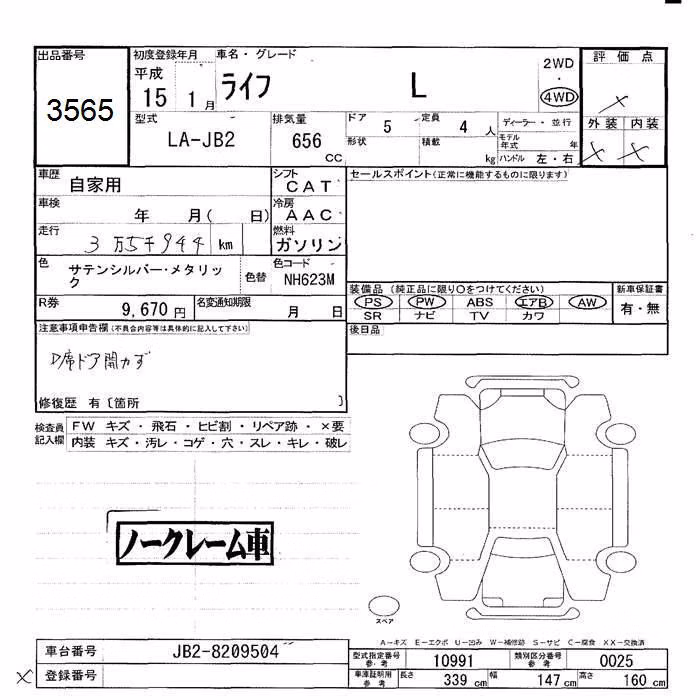 出品番号
3565
初度登録年月
平成
15 1月
車名・グレード
ライフ L
2WD
・
4WD
評価点
×
外装 内装
× ×
型式
LA-JB2
排気量
656
cc
ドア 5
定員 4 人
形状
積載 kg
ディーラー・並行
モデル年式 年
ハンドル 左・右
車歴 自家用
シフト
CAT
セールスポイント(正常に機能するものに限ります)
車検 年 月( 日)
冷房
AAC
走行 3万5千944 km
燃料
ガソリン
色 サテンシルバー・メタリック
色替
色コード
NH623M
装備品 (純正品に限り○をつけてください)
PS PW ABS エアB AW
SR ナビ TV カワ
新車保証書
有・無
R券 9,670円
名変通知期限 月 日
後日品
注意事項申告欄(不具合内容等は具体的に記入して下さい)
D席ドア開カず
修復歴 有〔箇所 〕
検査員記入欄
FW キズ・飛石・ヒビ割・リペア跡・×要
内装 キズ・汚レ・コゲ・穴・スレ・キレ・破レ
ノークレーム車
スペア
A-キズ E-エクボ U-凹み W-補修跡 S-サビ C-腐食 XX-交換済
車台番号 JB2-8209504
× 登録番号
型式指定番号参考 10991
類別区分番号参考 0025
車庫証明用参考
長さ 339 cm
幅 147 cm
高さ 160 cm